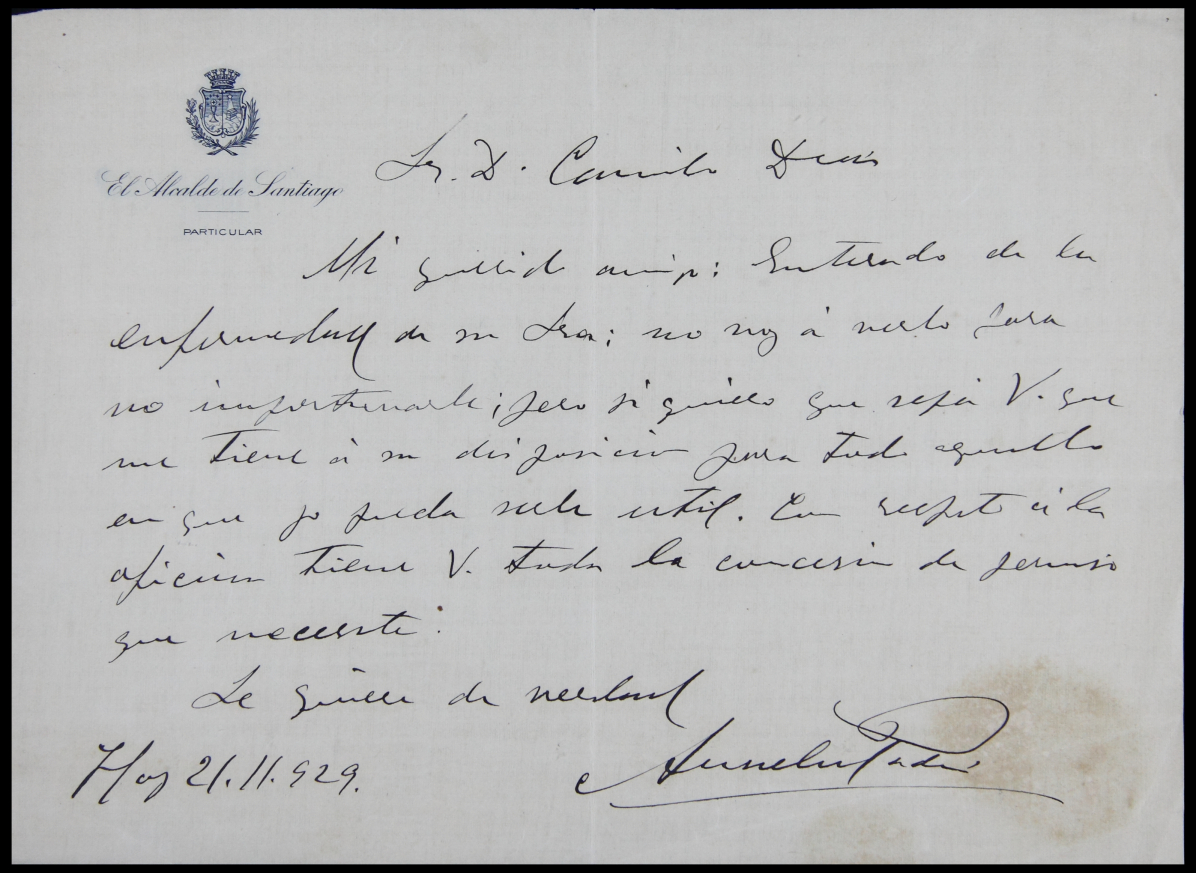 El Alcalde de Santiago
PARTICULAR
Sr. D. Camilo Díaz
Mi querido amigo: Enterado de la
enfermedad de su Sra; no voy á verlo para
no importunarle; pero si quiero que sepa V. que
me tiene á su disposición para todo aquello
en que yo pueda serle util. Con respeto á la
oficina tiene V. toda la concesión de permiso
que necesite.
Le quiere de verdad
Hoy 21.11.929.